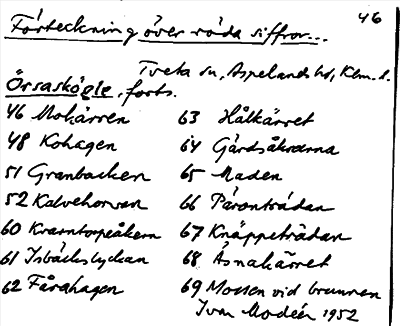 46
Förteckning över röda siffror...
Tveta sn, Aspelands hd, Klm. l.
Örsaskögle, forts.
46 Mokärren
48 Kohagen
51 Granbacken
52 Kalvehorvan
60 Kvarntorpeåkern
61 Isbäckslyckan
62 Fårahagen
63 Hålkärret
64 Gårdsåkrarna
65 Maden
66 Päronträdan
67 Knäppeträdan
68 Åsnakärret
69 Mossen vid brunnen
Ivar Modéer 1952